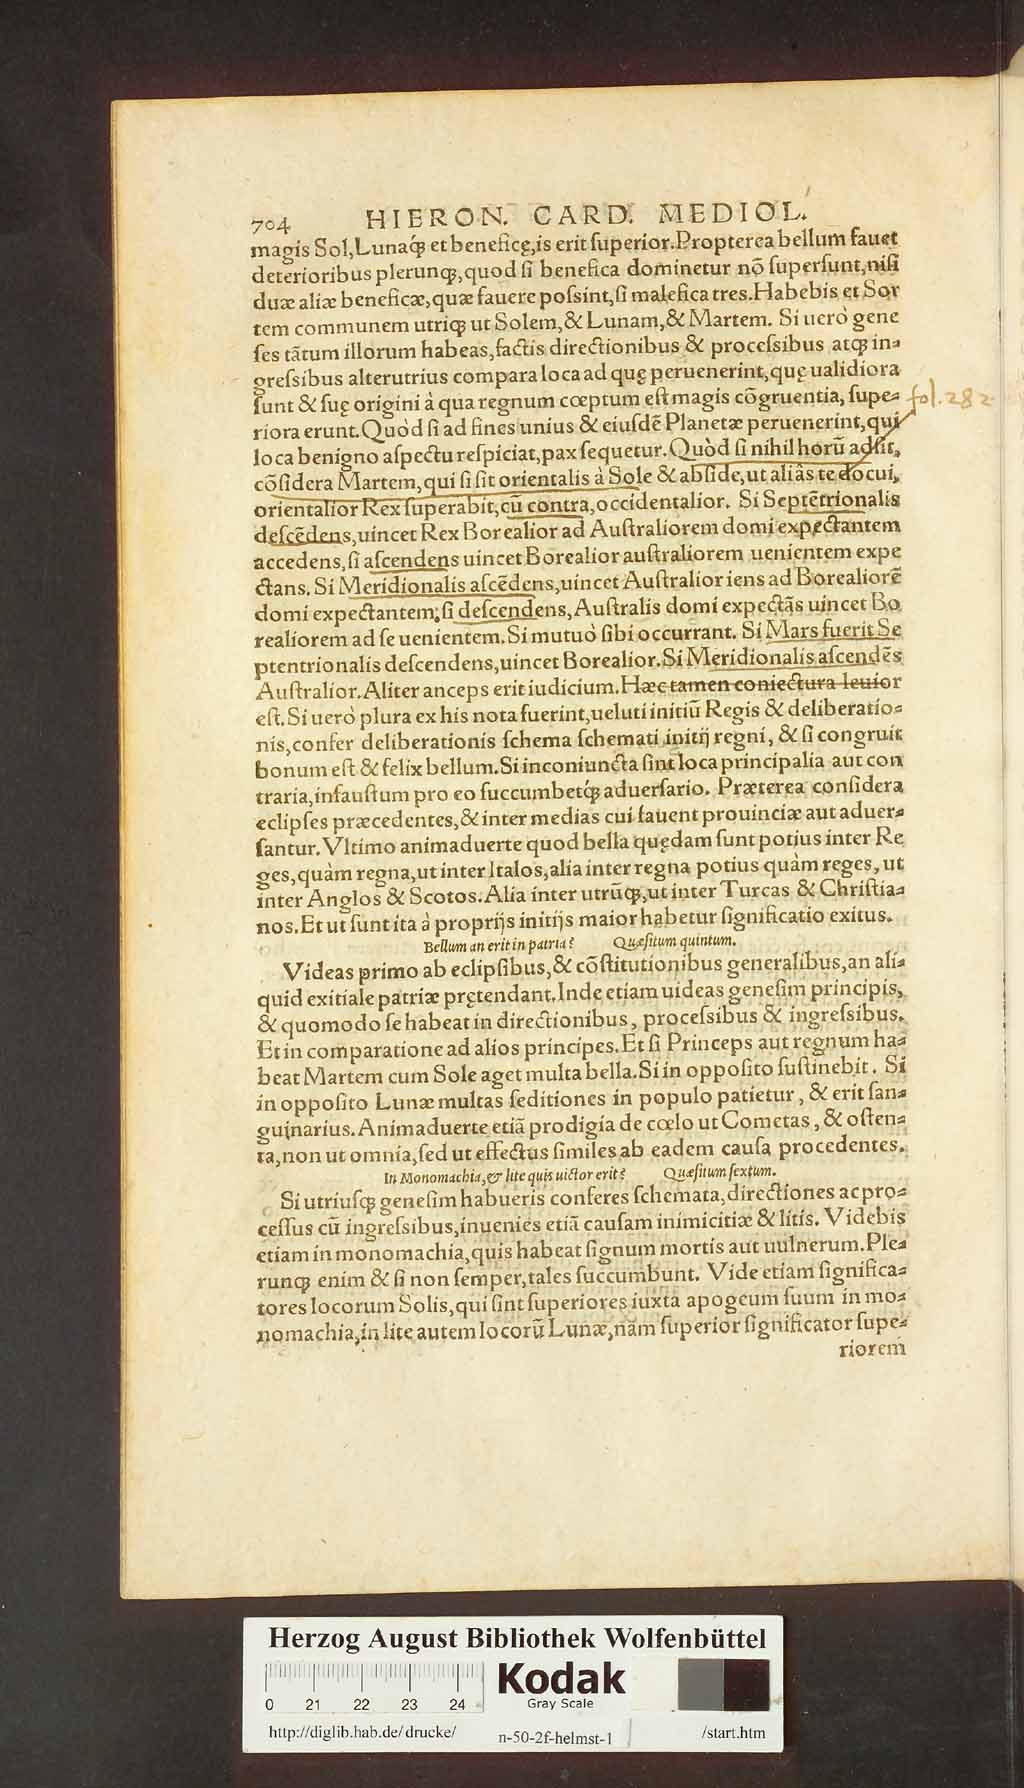 704 HIERON. CARD. MEDIOL.
magis Sol, Lunaq́; et beneficę, is erit ſuperior. Propterea bellum fauet
deterioribus plerunq;, quod ſi benefica dominetur nō ſuperſunt, niſi
duæ aliæ beneficæ, quæ fauere poſsint, ſi malefica tres. Habebis et Sor
tem communem utriq; ut Solem, & Lunam, & Martem. Si uerò gene
ſes tātum illorum habeas, factis directionibus & proceſsibus atq; in=
greſsibus alterutrius compara loca ad quę peruenerint, quę ualidiora
ſunt & ſuę origini à qua regnum cœptum eſt magis cōgruentia, ſupe=
fol. 282
riora erunt. Quòd ſi ad fines unius & eiuſdē Planetæ peruenerint, qui
loca benigno aſpectu reſpiciat, pax ſequetur. Quòd ſi nihil horū adſit,
cōſidera Martem, qui ſi ſit orientalis à Sole & abſide, ut aliâs te docui,
orientalior Rex ſuperabit, cū contra, occidentalior. Si Septētrionalis
deſcēdens, uincet Rex Borealior ad Auſtraliorem domi expectantem
accedens, ſi aſcendens uincet Borealior auſtraliorem uenientem expe
ctans. Si Meridionalis aſcēdens, uincet Auſtralior iens ad Borealiorē
domi expectantem; ſi deſcendens, Auſtralis domi expectās uincet Bo
realiorem ad ſe uenientem. Si mutuò ſibi occurrant. Si Mars fuerit Se
ptentrionalis deſcendens, uincet Borealior. Si Meridionalis aſcendēs
Auſtralior. Aliter anceps erit iudicium. Hæc tamen coniectura leuior
eſt. Si uerò plura ex his nota fuerint, ueluti initiū Regis & deliberatio=
nis, confer deliberationis ſchema ſchemati initij regni, & ſi congruit
bonum eſt & felix bellum. Si inconiuncta ſint loca principalia aut con
traria, infauſtum pro eo ſuccumbetq́; aduerſario. Præterea conſidera
eclipſes præcedentes, & inter medias cui fauent prouinciæ aut aduer=
ſantur. Vltimo animaduerte quod bella quędam ſunt potius inter Re
ges, quàm regna, ut inter Italos, alia inter regna potius quàm reges, ut
inter Anglos & Scotos. Alia inter utrūq;, ut inter Turcas & Chriſtia=
nos. Et ut ſunt ita à proprijs initijs maior habetur ſignificatio exitus.
Bellum an erit in patria? Quæſitum quintum.
Videas primo ab eclipſibus, & cōſtitutionibus generalibus, an ali=
quid exitiale patriæ prętendant. Inde etiam uideas geneſim principis,
& quomodo ſe habeat in directionibus, proceſsibus & ingreſsibus.
Et in comparatione ad alios principes. Et ſi Princeps aut regnum ha=
beat Martem cum Sole aget multa bella. Si in oppoſito ſuſtinebit. Si
in oppoſito Lunæ multas ſeditiones in populo patietur, & erit ſan=
guinarius. Animaduerte etiā prodigia de cœlo ut Cometas, & oſten=
ta, non ut omnia, ſed ut effectus ſimiles ab eadem cauſa procedentes.
In Monomachia, & lite quis uictor erit? Quæſitum ſextum.
Si utriuſq; geneſim habueris conferes ſchemata, directiones ac pro=
ceſſus cū ingreſsibus, inuenies etiā cauſam inimicitiæ & litis. Videbis
etiam in monomachia, quis habeat ſignum mortis aut uulnerum. Ple=
runq; enim & ſi non ſemper, tales ſuccumbunt. Vide etiam ſignifica=
tores locorum Solis, qui ſint ſuperiores iuxta apogeum ſuum in mo=
nomachia, in lite autem locorū Lunæ, nam ſuperior ſignificator ſupe=
riorem
Herzog August Bibliothek Wolfenbüttel
Kodak
Gray Scale
0 21 22 23 24
http://diglib.hab.de/drucke/ n-50-2f-helmst-1 /start.htm